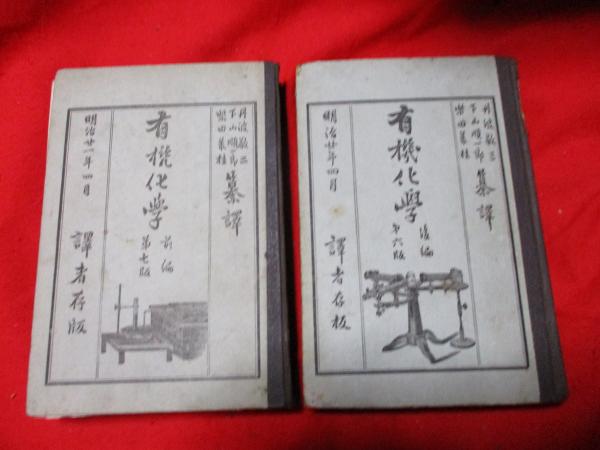 丹波敬三
下山順一郎
柴田承桂
纂譯
有機化學
前編
第七版
明治廿一年四月
譯者存版
丹波敬三
下山順一郎
柴田承桂
纂譯
有機化學
後編
第六版
明治廿年四月
譯者存板